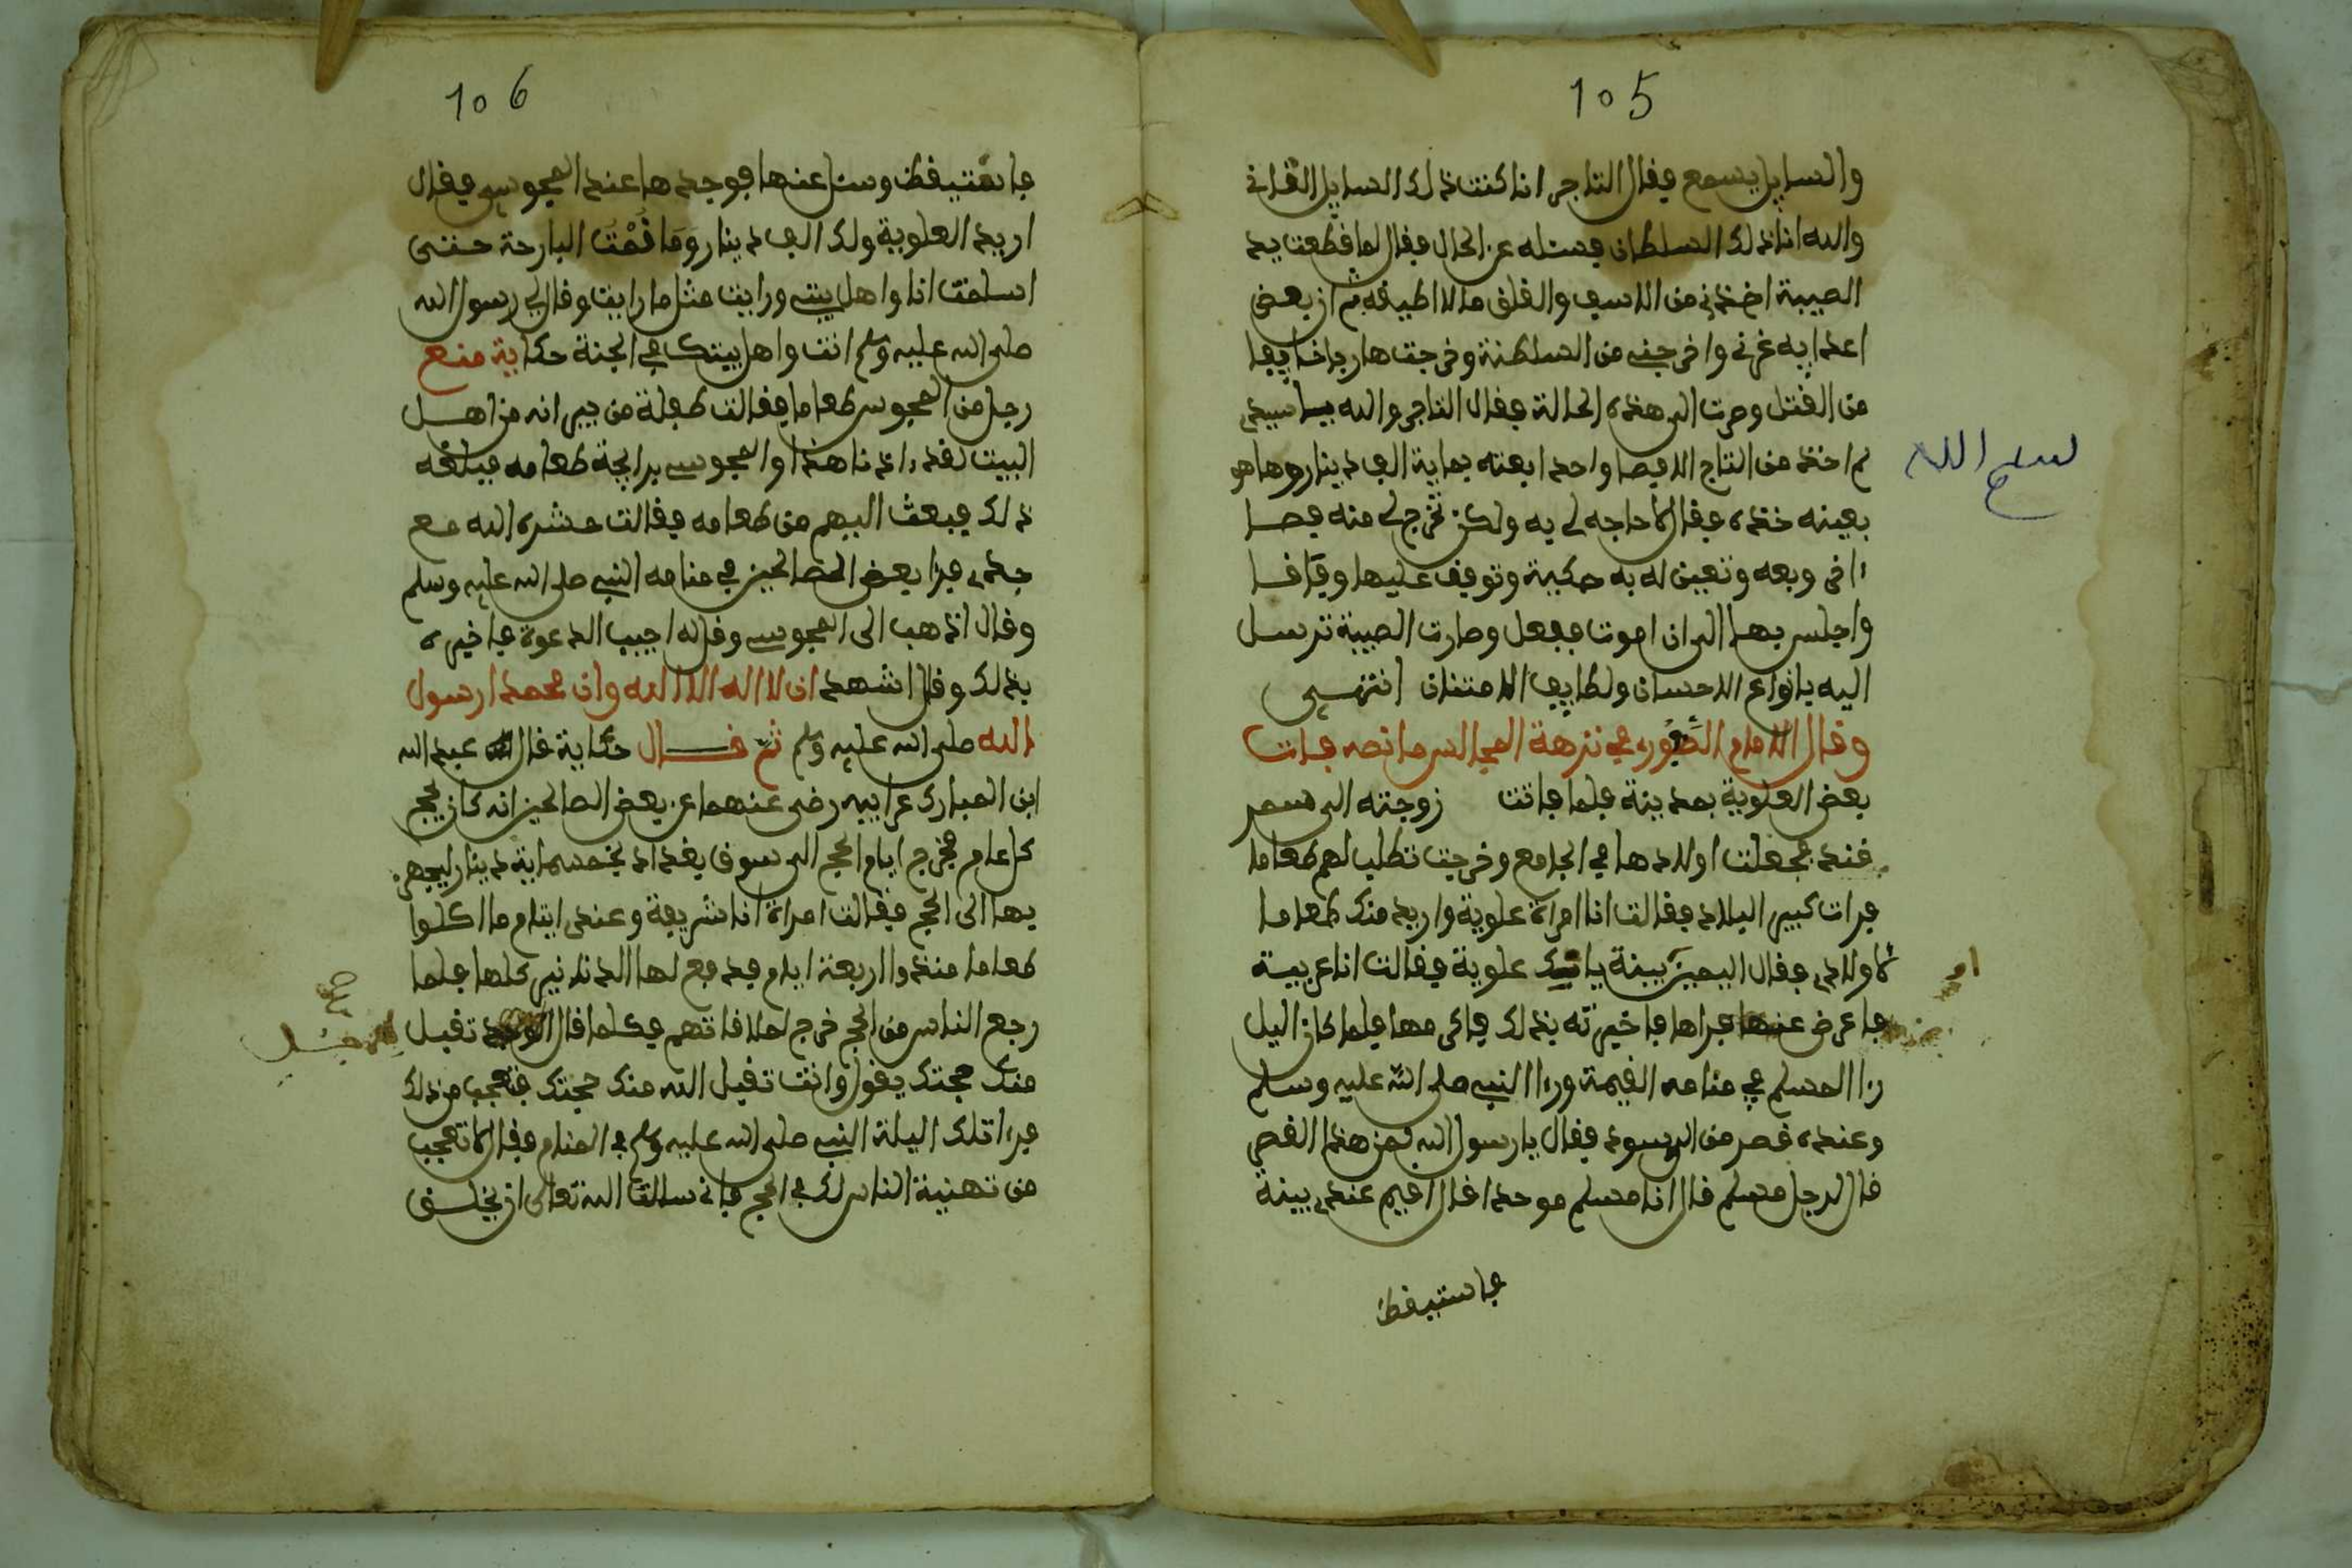 105
والسايل يسمع فقال التاجر انا كنت ذلك السايل القاني
والله انا ذلك السلطان فسئله عن الحال فقال لما قطعت يد
الصبية اخذني من الاسف والقلق ما لا اطيقه ثم ان بعض
اعدايه غرني واخرجني من السلطنة وخرجت هاربا خايفا
من القتل وصرت الى هذه الحالة فقال التاجر والله يا سيدي
لم اخذ من التاج الا فصا واحدا بعته بماية الف دينار وها هو
بعينه خذه فقال لا حاجه لي به ولكن تخرج لي منه فصا
ااخر وبعه وتعين له به وتوقف عليها وقافا
واجلس بها الى ان اموت ففعل وصارت الصبية ترسل
اليه بانواع الاحسان ولطايف الامتنان انتهى
وقال الامام الصفوري في نزهة المجالس ما نصه مات
بعض العلوية بمدينة فلما فاتت زوجته الى سمر
قند فجعلت اولادها في الجامع وخرجت تطلب لهم طعاما
فرات كبير البلاد فقالت انا امراة علوية واريد منك طعاما
لاولادي فقال البينة علوية فقالت انا غريبة
فاعرض عنها فراها فاخبرته بذلك فاكرمها فلما كان اليل
راا المسلم في منامه القيمة وراا النبي صلى الله عليه وسلم
وعنده قصر من فقال يا رسول الله لمن هذا القصر
قال لرجل مسلم قال انا مسلم موحدا قال اقيم عندي بينة
فاستيقظ
بسم الله
او
106
فاستيقظ وسئل عنها فوجدها عند المجوسي فقال
اريد العلوية ولك الف دينار وَمَا نُمْتَ البارحة حتى
اسلمت انا واهل بيتي ورايت مثل ما رايت وقال لي رسول الله
صلى الله عليه وسلم انت واهل بيتك في الجنة حكاية منع
رجل من المجوس طعاما فقالت طفلة من جيرانه من اهل
البيت لقد ااذانا هذا المجوسي برايحة طعامه فبلغه
ذلك فبعث اليهم من طعامه فقالت حشره الله مع
جدي فراا بعض الصالحين في منامه النبي صلى الله عليه وسلم
وقال اذهب الى المجوسي وقل له اجيب الدعوة فاخبره
بذلك وقال اشهد ان لا اله الا الله وان محمدا رسول
الله صلى الله عليه وسلم ثم قال حكاية قال عبد الله
ابن المبارك عن ابيه رضي عنهما عن بعض الصالحين انه كان يحج
كل عام فخرج ايام الحج الى سوق بغداد بخمسماية دينار ليجهز
بها الى الحج فقالت امراة انا شريفة وعندي ايتام ما اكلوا
طعاما منذ اربعة ايام فدفع لها الدنانير كلها فلما
رجع الناس من الحج خرج لملاقاتهم فكلما قال تقبل
منك حجتك يقول وانت تقبل الله منك حجتك فتعجب من ذلك
فراا تلك اليلة النبي صلى الله عليه وسلم في المنام فقال لا تعجب
من تهنية الناس لك في الحج فاني سالت الله تعالى ان يخلق